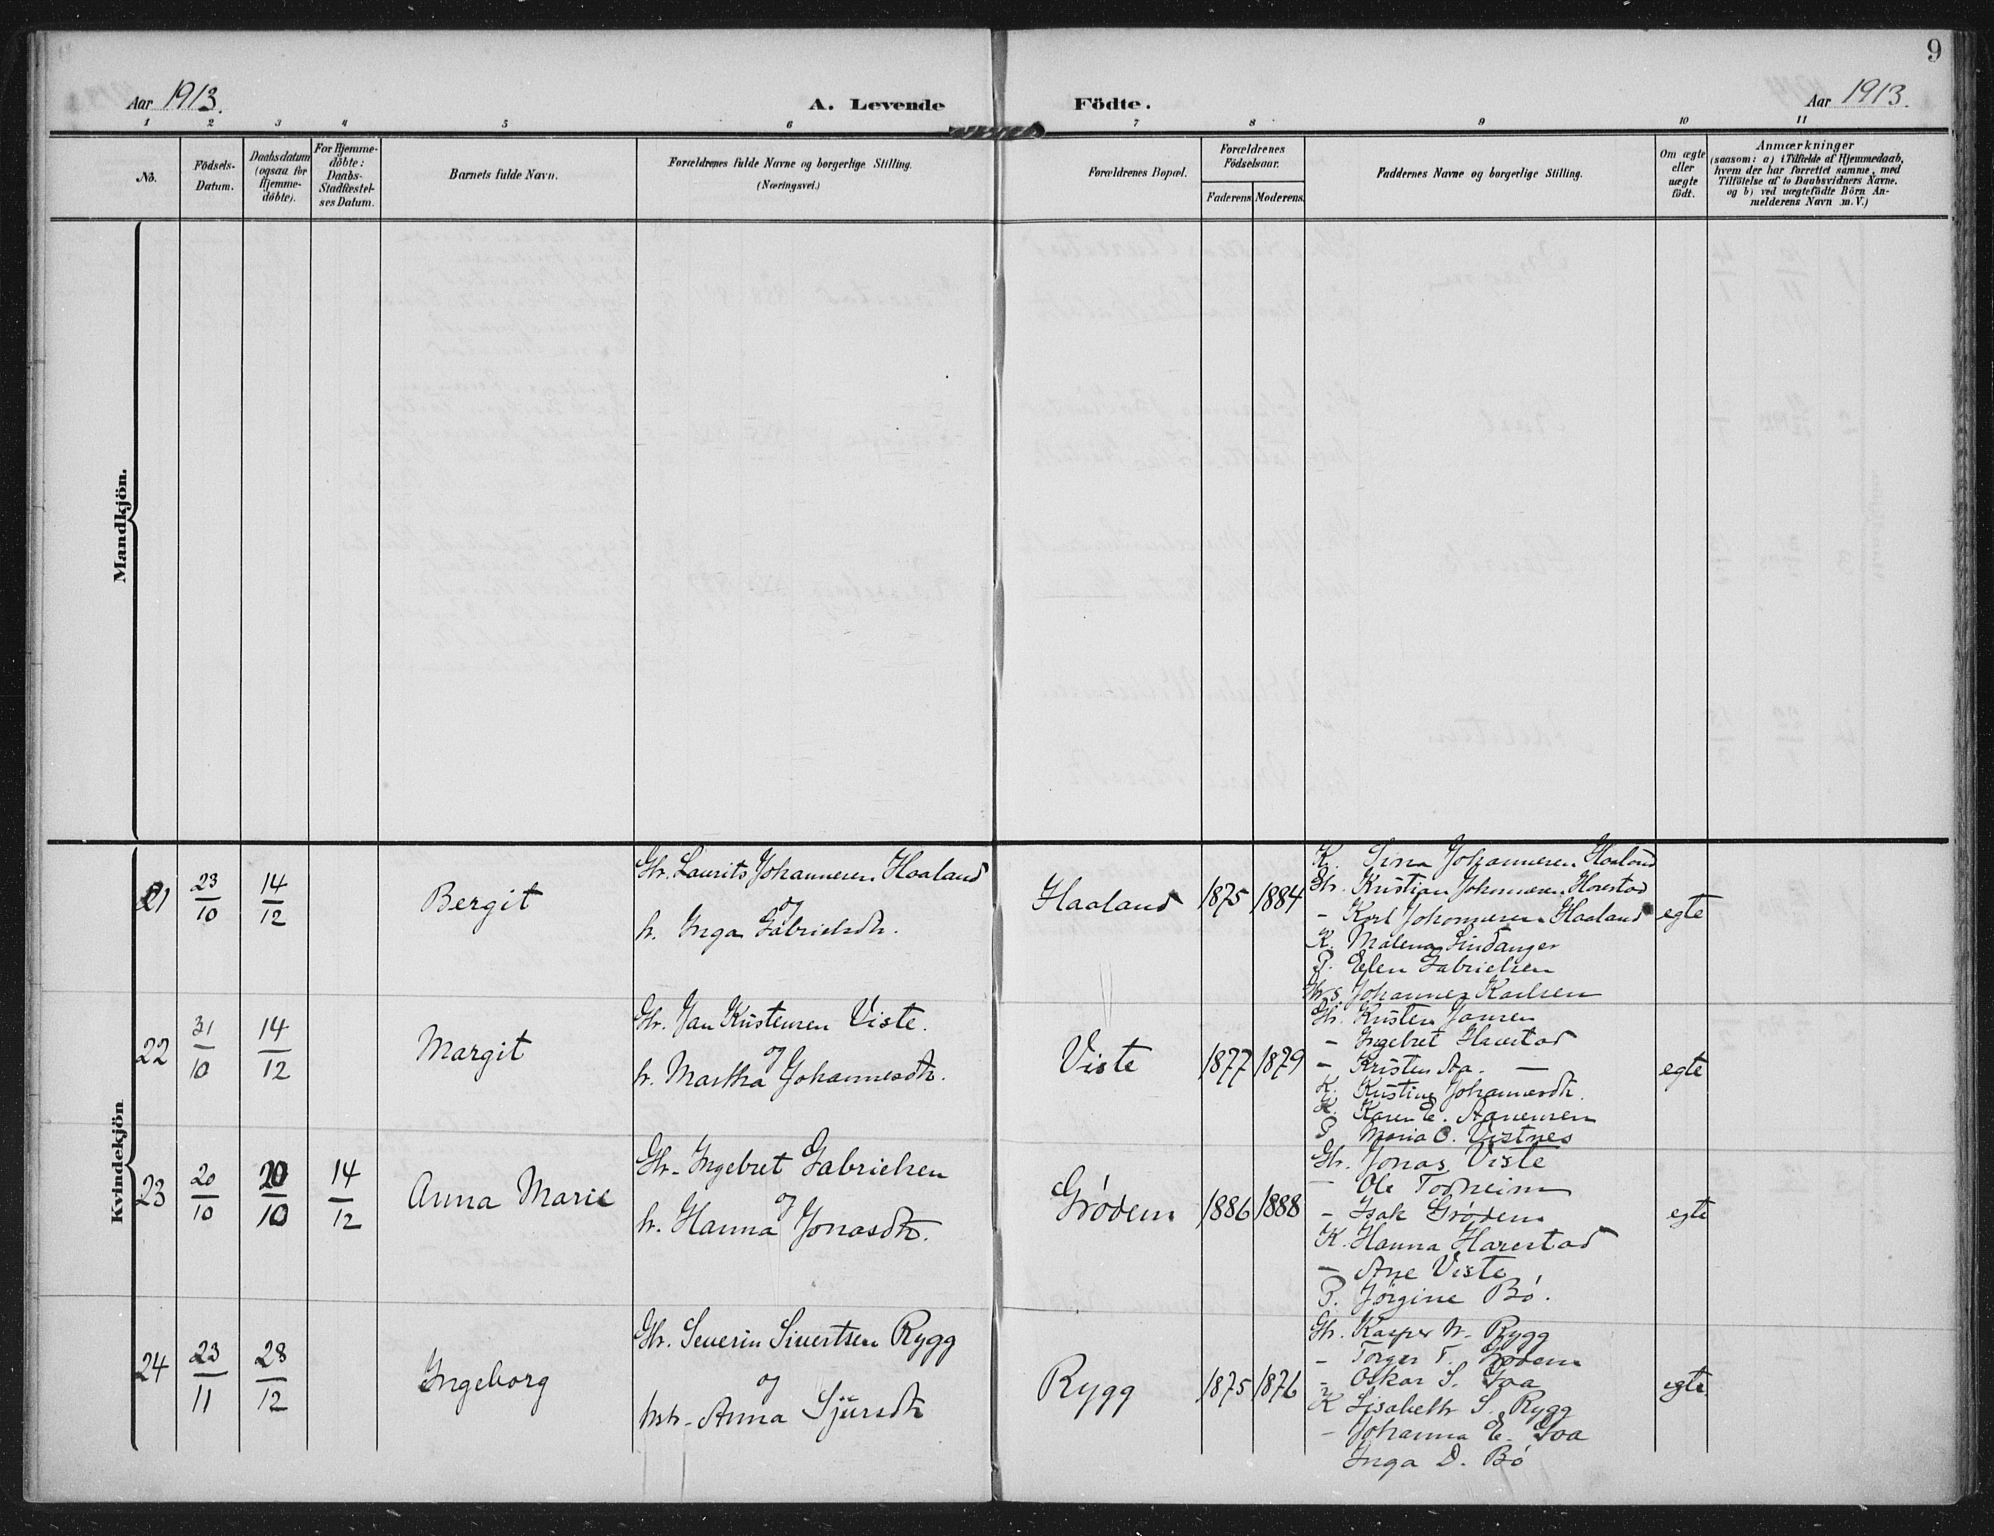 9
Aar 1913.
A. Levende Födte.
Aar 1913.
1 2 3 4 5 6 7 8 9 10 11
No.
Födsels-Datum.
Daabsdatum (ogsaa for Hjemme-döbte).
For Hjemme-döbte: Daabs-Stadfæstel-ses Datum.
Barnets fulde Navn.
Forældrenes fulde Navne og borgerlige Stilling.
(Næringsvei.)
Forældrenes Bopæl.
Forældrenes Födselsaar.
Faderens. Moderens.
Faddernes Navne og borgerlige Stilling.
Om ægte eller uægte födt.
Anmærkninger
(saasom: a) i Tilfælde af Hjemmedaab,
hvem der har forrettet samme, med
Tilföielse af to Daabsvidners Navne.
og b) ved uægtefödte Börn An-
melderens Navn m. V.)
Mandkjön.
Kvindekjön
21 23/10 14/12 Bergit
Gbr. Laurits Johannesen Haaland
og
h. Inga Gabrielsdtr.
Haaland 1875 1884
K. Sina Johannesen Haaland
Gbr. Kristian Johannesen Harestad
- Karl Johannesen Haaland
K. Malena Lindanger
P. Elen Gabrielsen
Gbrs. Johannes Karlsen
egte
22 31/10 14/12 Margit
Gbr. Jan Kristensen Viste.
og
h. Martha Johannesdtr.
Viste 1877 1879
Gbr. Kristen Jansen
- Ingebret Harestad
- Kristen Aa. -
K. Kristine Johannesdtr.
K. Karen E. Aanensen
P. Maria O. Vistnes
egte
23 20/10 20/10 14/12 Anna Marie
Gbr. Ingebret Gabrielsen
og
h. Hanna Jonasdtr.
Grødem 1886 1888
Gbr. Jonas Viste
- Ole Torheim
- Isak Grødem
K. Hanna Harestad
- Ane Viste
P. Jørgine Bø.
egte
24 23/11 28/12 Ingeborg
Gbr. Severin Sivertsen Rygg
og
hstr. Anna Sjursdtr
Rygg 1875 1876
Gbr. Kasper W. Rygg
- Torger T. Grødem
- Oskar S. Goa
K Lisabeth S. Rygg
- Johanna E. Goa
Inga D. Bø
egte.